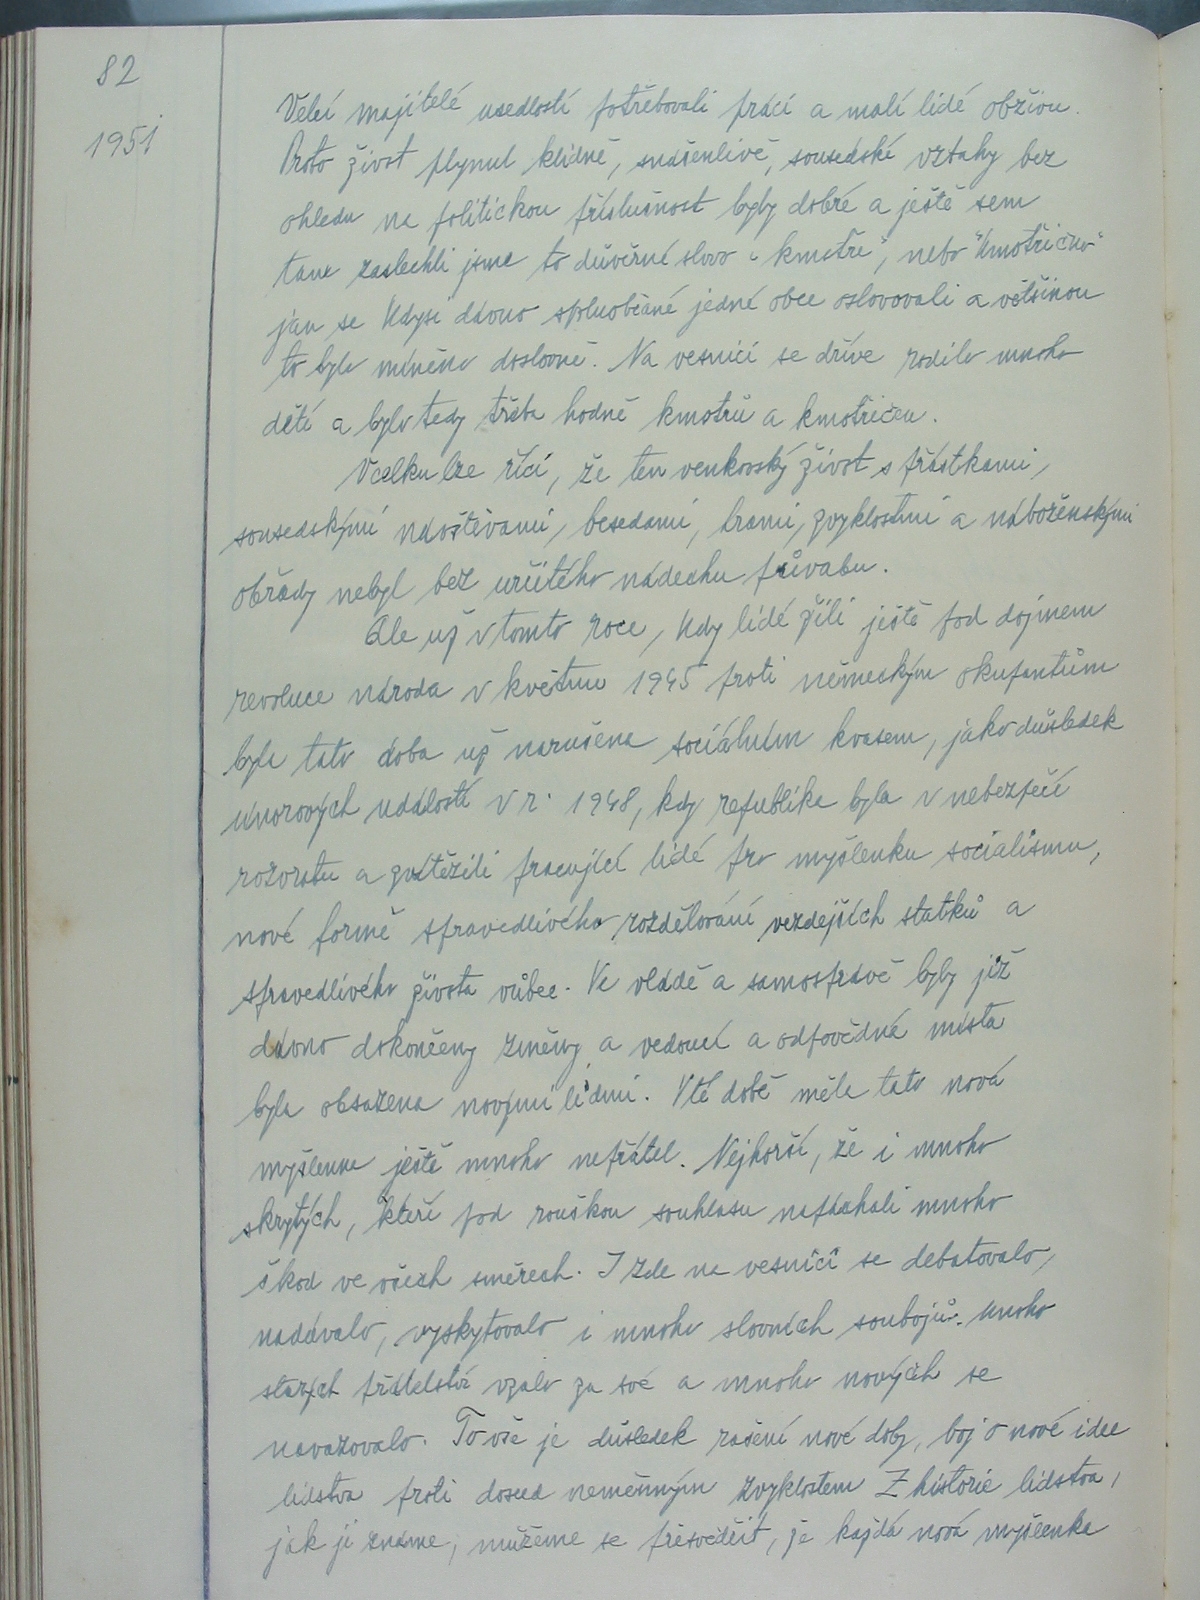 82
1951
Velcí majitelé usedlostí potřebovali práci a malí lidé obživu.
Proto život plynul klidně, snášenlivě, sousedské vztahy bez
ohledu na politickou příslušnost byly dobré a ještě sem
tam zaslechli jsme to důvěrné slovo "kmotře", nebo "kmotřičko"
jak se kdysi dávno spoluobčané jedné obce oslovovali a většinou
to bylo míněno doslovně. Na vesnici se dříve rodilo mnoho
dětí a bylo tedy třeba hodně kmotrů a kmotřiček.
Vcelku lze říci, že ten venkovský život s přástkami,
sousedskými návštěvami, besedami, hrami, zvyklostmi a náboženskými
obřady nebyl bez určitého nádechu půvabu.
Ale už v tomto roce, kdy lidé žili ještě pod dojmem
revoluce národa v květnu 1945 proti německým okupantům
byla tato doba už narušena sociálním kvasem, jako důsledek
únorových událostí v r. 1948, kdy republika byla v nebezpečí
rozvratu a zvítězili pracující lidé pro myšlenku socialismu,
nové formě spravedlivého rozdělování vezdejších statků a
spravedlivého života vůbec. Ve vládě a samosprávě byly již
dávno dokončeny změny a vedoucí a odpovědná místa
byla obsazena novými lidmi. V té době měla tato nová
myšlenka ještě mnoho nepřátel. Nejhorší, že i mnoho
skrytých, kteří pod rouškou souhlasu napáchali mnoho
škod ve všech směrech. I zde na vesnici se debatovalo,
nadávalo, vyskytovalo i mnoho slovních soubojů. Mnoho
starých přátelství vzalo za své a mnoho nových se
navazovalo. To vše je důsledek rašení nové doby, boj o nové idee
lidstva proti dosud neměnným zvyklostem Z historie lidstva,
jak ji známe, můžeme se přesvědčit, že každá nová myšlenka